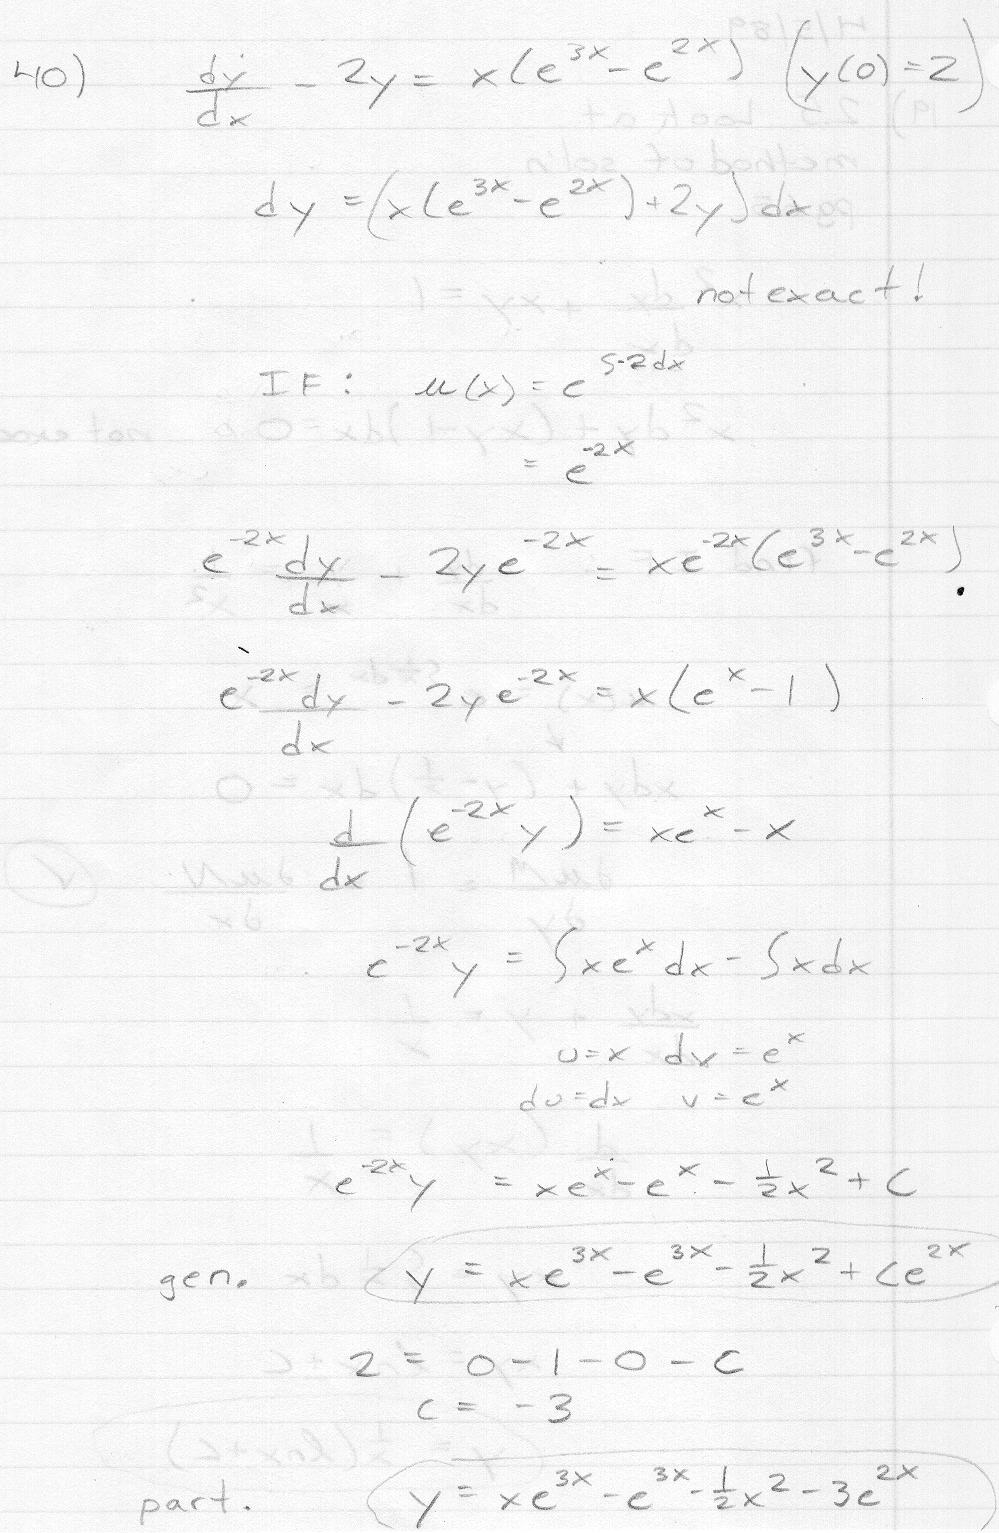 40) dy/dx - 2y = x(e^3x - e^2x) (y(0)=2)
dy = (x(e^3x - e^2x)+2y)dx
not exact!
IF: u(x) = e^∫-2dx
= e^-2x
e^-2x dy/dx - 2ye^-2x = xe^-2x(e^3x - e^2x).
e^-2x dy/dx - 2ye^-2x = x(e^x - 1)
d/dx (e^-2x y) = xe^x - x
e^-2x y = ∫xe^x dx - ∫xdx
u=x dv = e^x
du=dx v = e^x
e^-2x y = xe^x - e^x - 1/2x^2 + C
gen. y = xe^3x - e^3x - 1/2x^2 + Ce^2x
2 = 0 - 1 - 0 - C
C = -3
part. y = xe^3x - e^3x - 1/2x^2 - 3e^2x